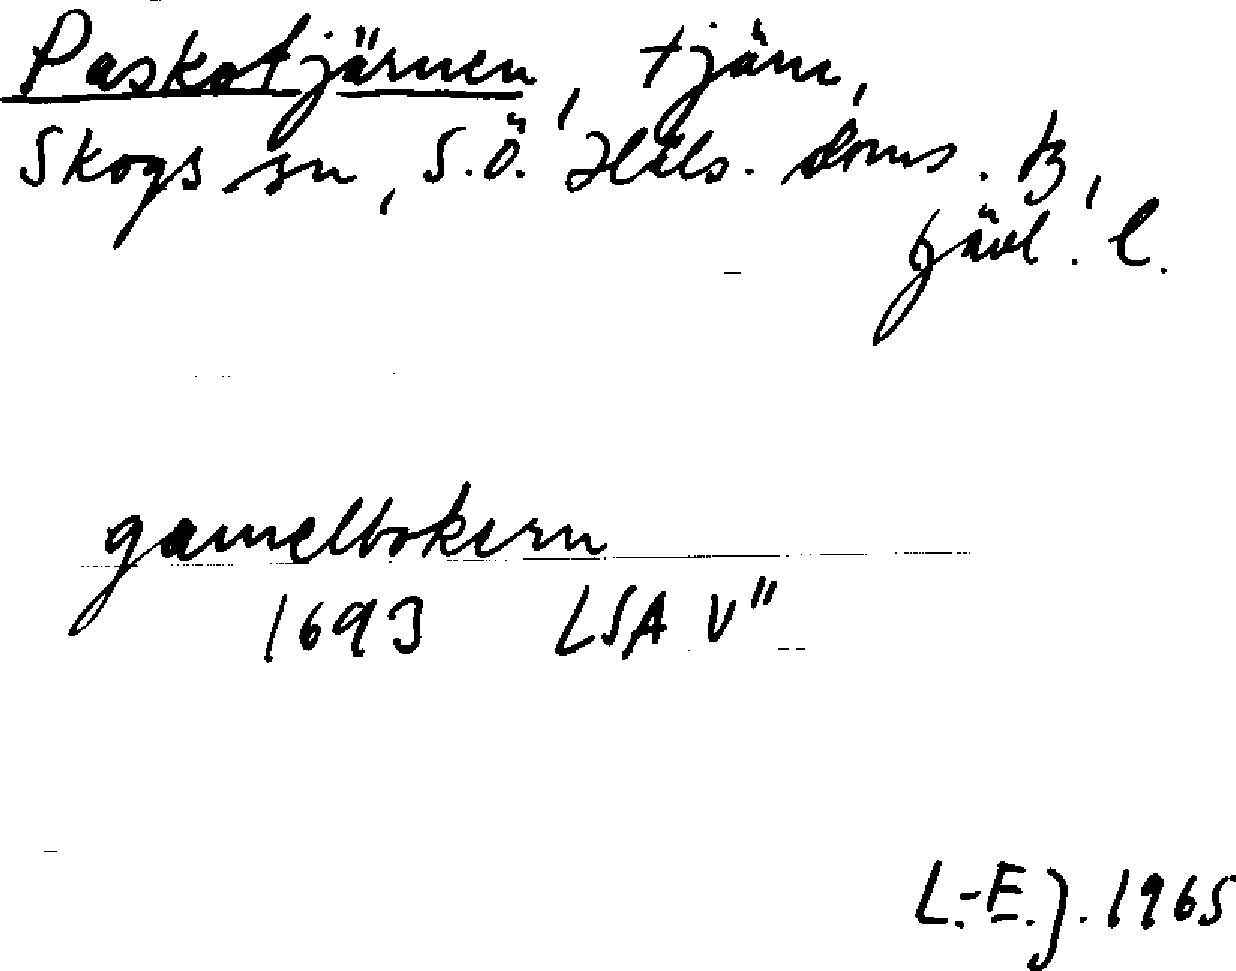 Paskotjärnen, tjärn,
Skogs sn, S.Ö. Häls. doms. tz,
Gävl. l.
gamelbokern
1693 LSA V"
L.-E. J. 1965